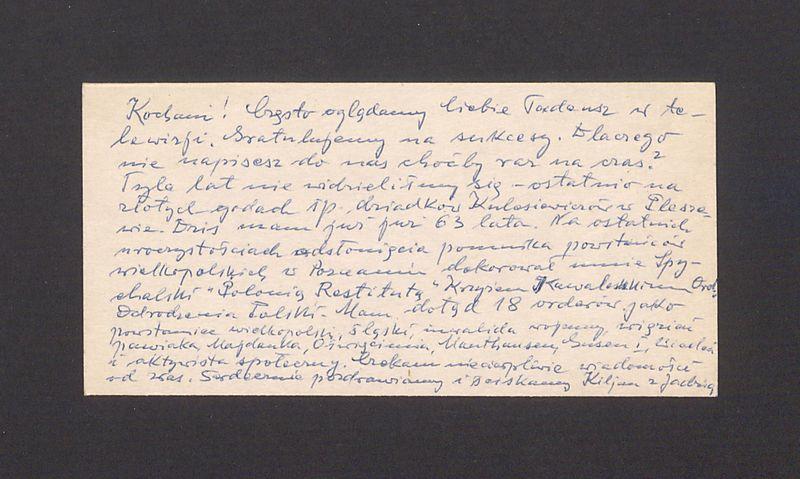 Kochani! Często oglądamy Ciebie Tadeusz w te-
lewizji. Gratulujemy na sukcesy. Dlaczego
nie napisesz do nas choćby raz na czas?
Tyle lat nie widzieliśmy się - ostatnio na
złotych godach śp. dziadków Kulasiewiczów w Plesze-
wie. Dziś mam już 63 lata. Na ostatnich
uroczystościach odsłonięcia pomnika powstańców
wielkopolskich w Poznaniu dekorował mnie Spy-
chalski "Polonia Restituta" Krzyżem Kawalerskim Ord.
Odrodzenia Polski. Mam dotąd 18 orderów jako
powstaniec wielkopolski, śląski, inwalida wojenny, więzień
Pawiaka, Majdanka, Oświęcimia, Mauthausen, Gusen I,
i aktywista społeczny. Czekam niecierpliwie wiadomości
od was. Serdecznie pozdrawiamy i ściskamy Kiljan z Jadzią